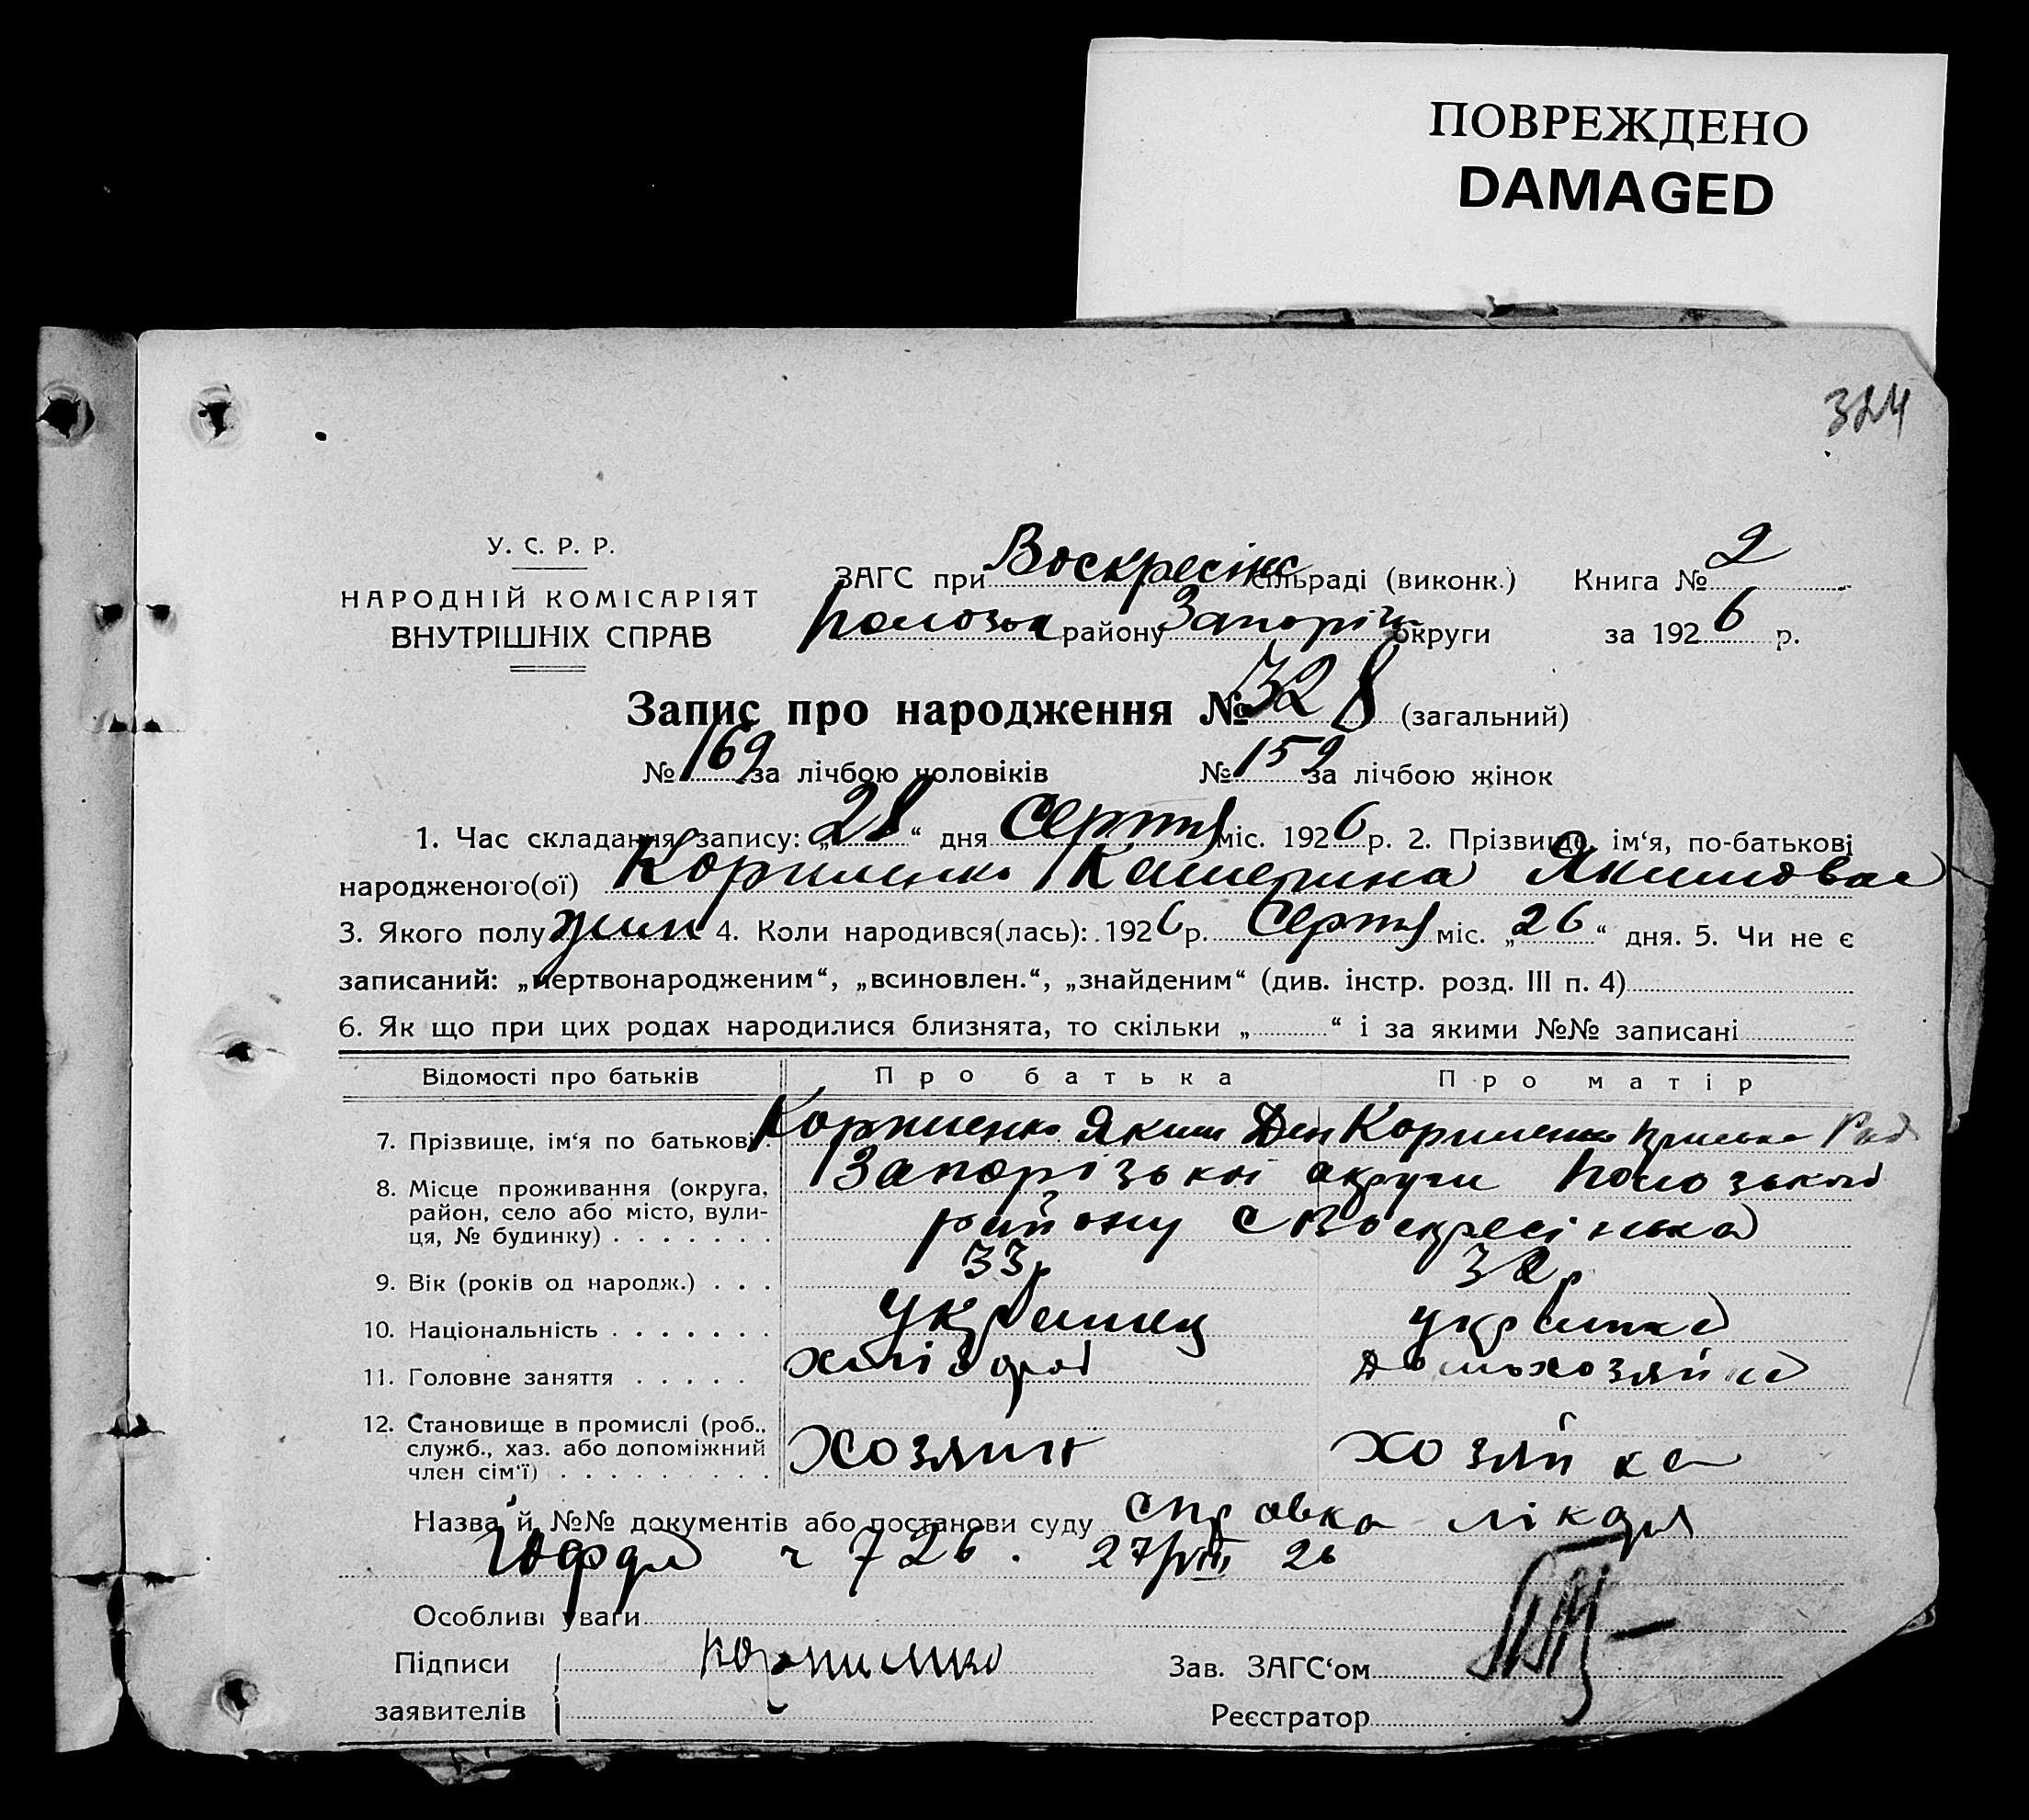 ПОВРЕЖДЕНО
DAMAGED
324
У. С. Р. Р.
НАРОДНІЙ КОМІСАРІЯТ
ВНУТРІШНІХ СПРАВ
ЗАГС при Воскресінс сільраді (виконк.) Книга № 2
Полозьк району Запоріж округи за 1926 р.
Запис про народження № 328 (загальний)
№ 169 за лічбою чоловіків № 159 за лічбою жінок
1. Час складання запису: „28“ дня Серпня міс. 1926 р. 2. Прізвище, ім‘я, по-батькові
народженого(ої) Катерина Якимовна
3. Якого полу жин 4. Коли народився(лась): 1926 р. Серпня міс. „26“ дня. 5. Чи не є
записаний: „мертвонародженим“, „всиновлен.“, „знайденим“ (див. інстр. розд. III п. 4)
6. Як що при цих родах народилися близнята, то скільки „ “ і за якими №№ записані
Відомості про батьків Про батька Про матір
7. Прізвище, ім‘я по батькові Яким
8. Місце проживання (округа, район, село або місто, вулиця, № будинку) Запорізької округи Полозького
району с Воскресінька
9. Вік (років од народж.) 33 р 32 р
10. Національність українец українка
11. Головне заняття хлібороб домохозяйка
12. Становище в промислі (роб., служб., хаз. або допоміжний член сім‘ї) хозяин хозяйка
Назва й №№ документів або постанови суду справка лікаря
ч 726. 27/VIII 26
Особливі уваги
Підписи
заявителів
Зав. ЗАГС‘ом
Реєстратор